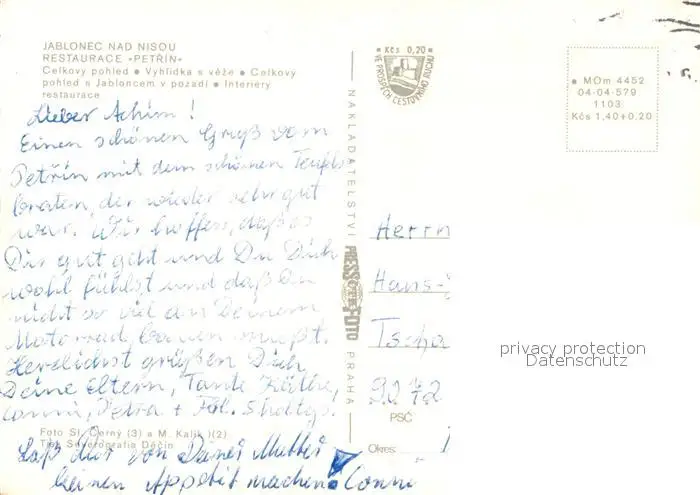 JABLONEC NAD NISOU
RESTAURACE »PETŘÍN«
Celkový pohled • Vyhlídka s věže • Celkový
pohled s Jabloncem v pozadí • Interiéry
restaurace
Lieber Achim!
Einen schönen Gruß vom
Petřín mit dem schönen Teufels
braten, der wieder sehr gut
war. Wir hoffen, daß es
Dir gut geht und Du Dich
wohl fühlst und daß Du
nicht so viel an Deinem
Motorrad bauen mußt.
Herzlichst grüßen Dich
Deine Eltern, Tante Käthe,
Conni, Petra + Fal.
Foto St. Černý (3) a M. Kalík (2)
Tisk Severografia Děčín
Laß Dir von Deiner Mutter
keinen Appetit machen! Conni
NAKLADATELSTVÍ
PRESSFOTO
PRAHA
• Kčs 0,20 •
VE PROSPĚCH CESTOVNÍHO RUCHU
• MOm 4452
04-04-579
1103
Kčs 1,40+0,20
Herrn
Hans-
Tscha
9272
PSČ
Okres
privacy protection
Datenschutz